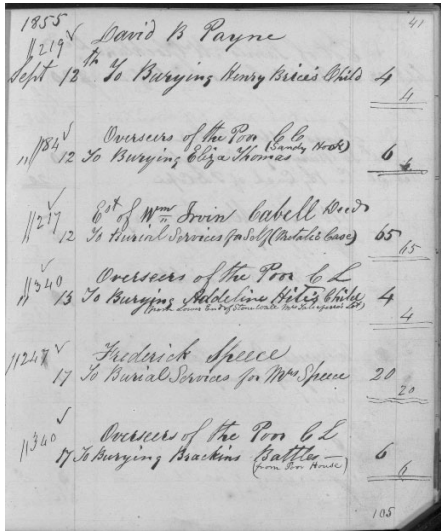 1855 41
11219 David B Payne
Sept 12th To Burying Henry Brice's Child 4
4
11184 Overseers of the Poor C C
" 12 To Burying Eliza Thomas (Sandy Hook) 6
6
11217 Est of Wm Irvin Cabell Decd
12 To Burial Services for Self (Metalic Case) 65
65
11340 Overseers of the Poor C L
" 13 To Burying Addeline Hite's Child 4
(from Lower End of Stonewall Lot)
4
11247 Frederick Speece
17 To Burial Services for Mrs Speece 20
20
11340 Overseers of the Poor C L
17 To Burying Brackins Battles — 6
(from Poor House)
6
105